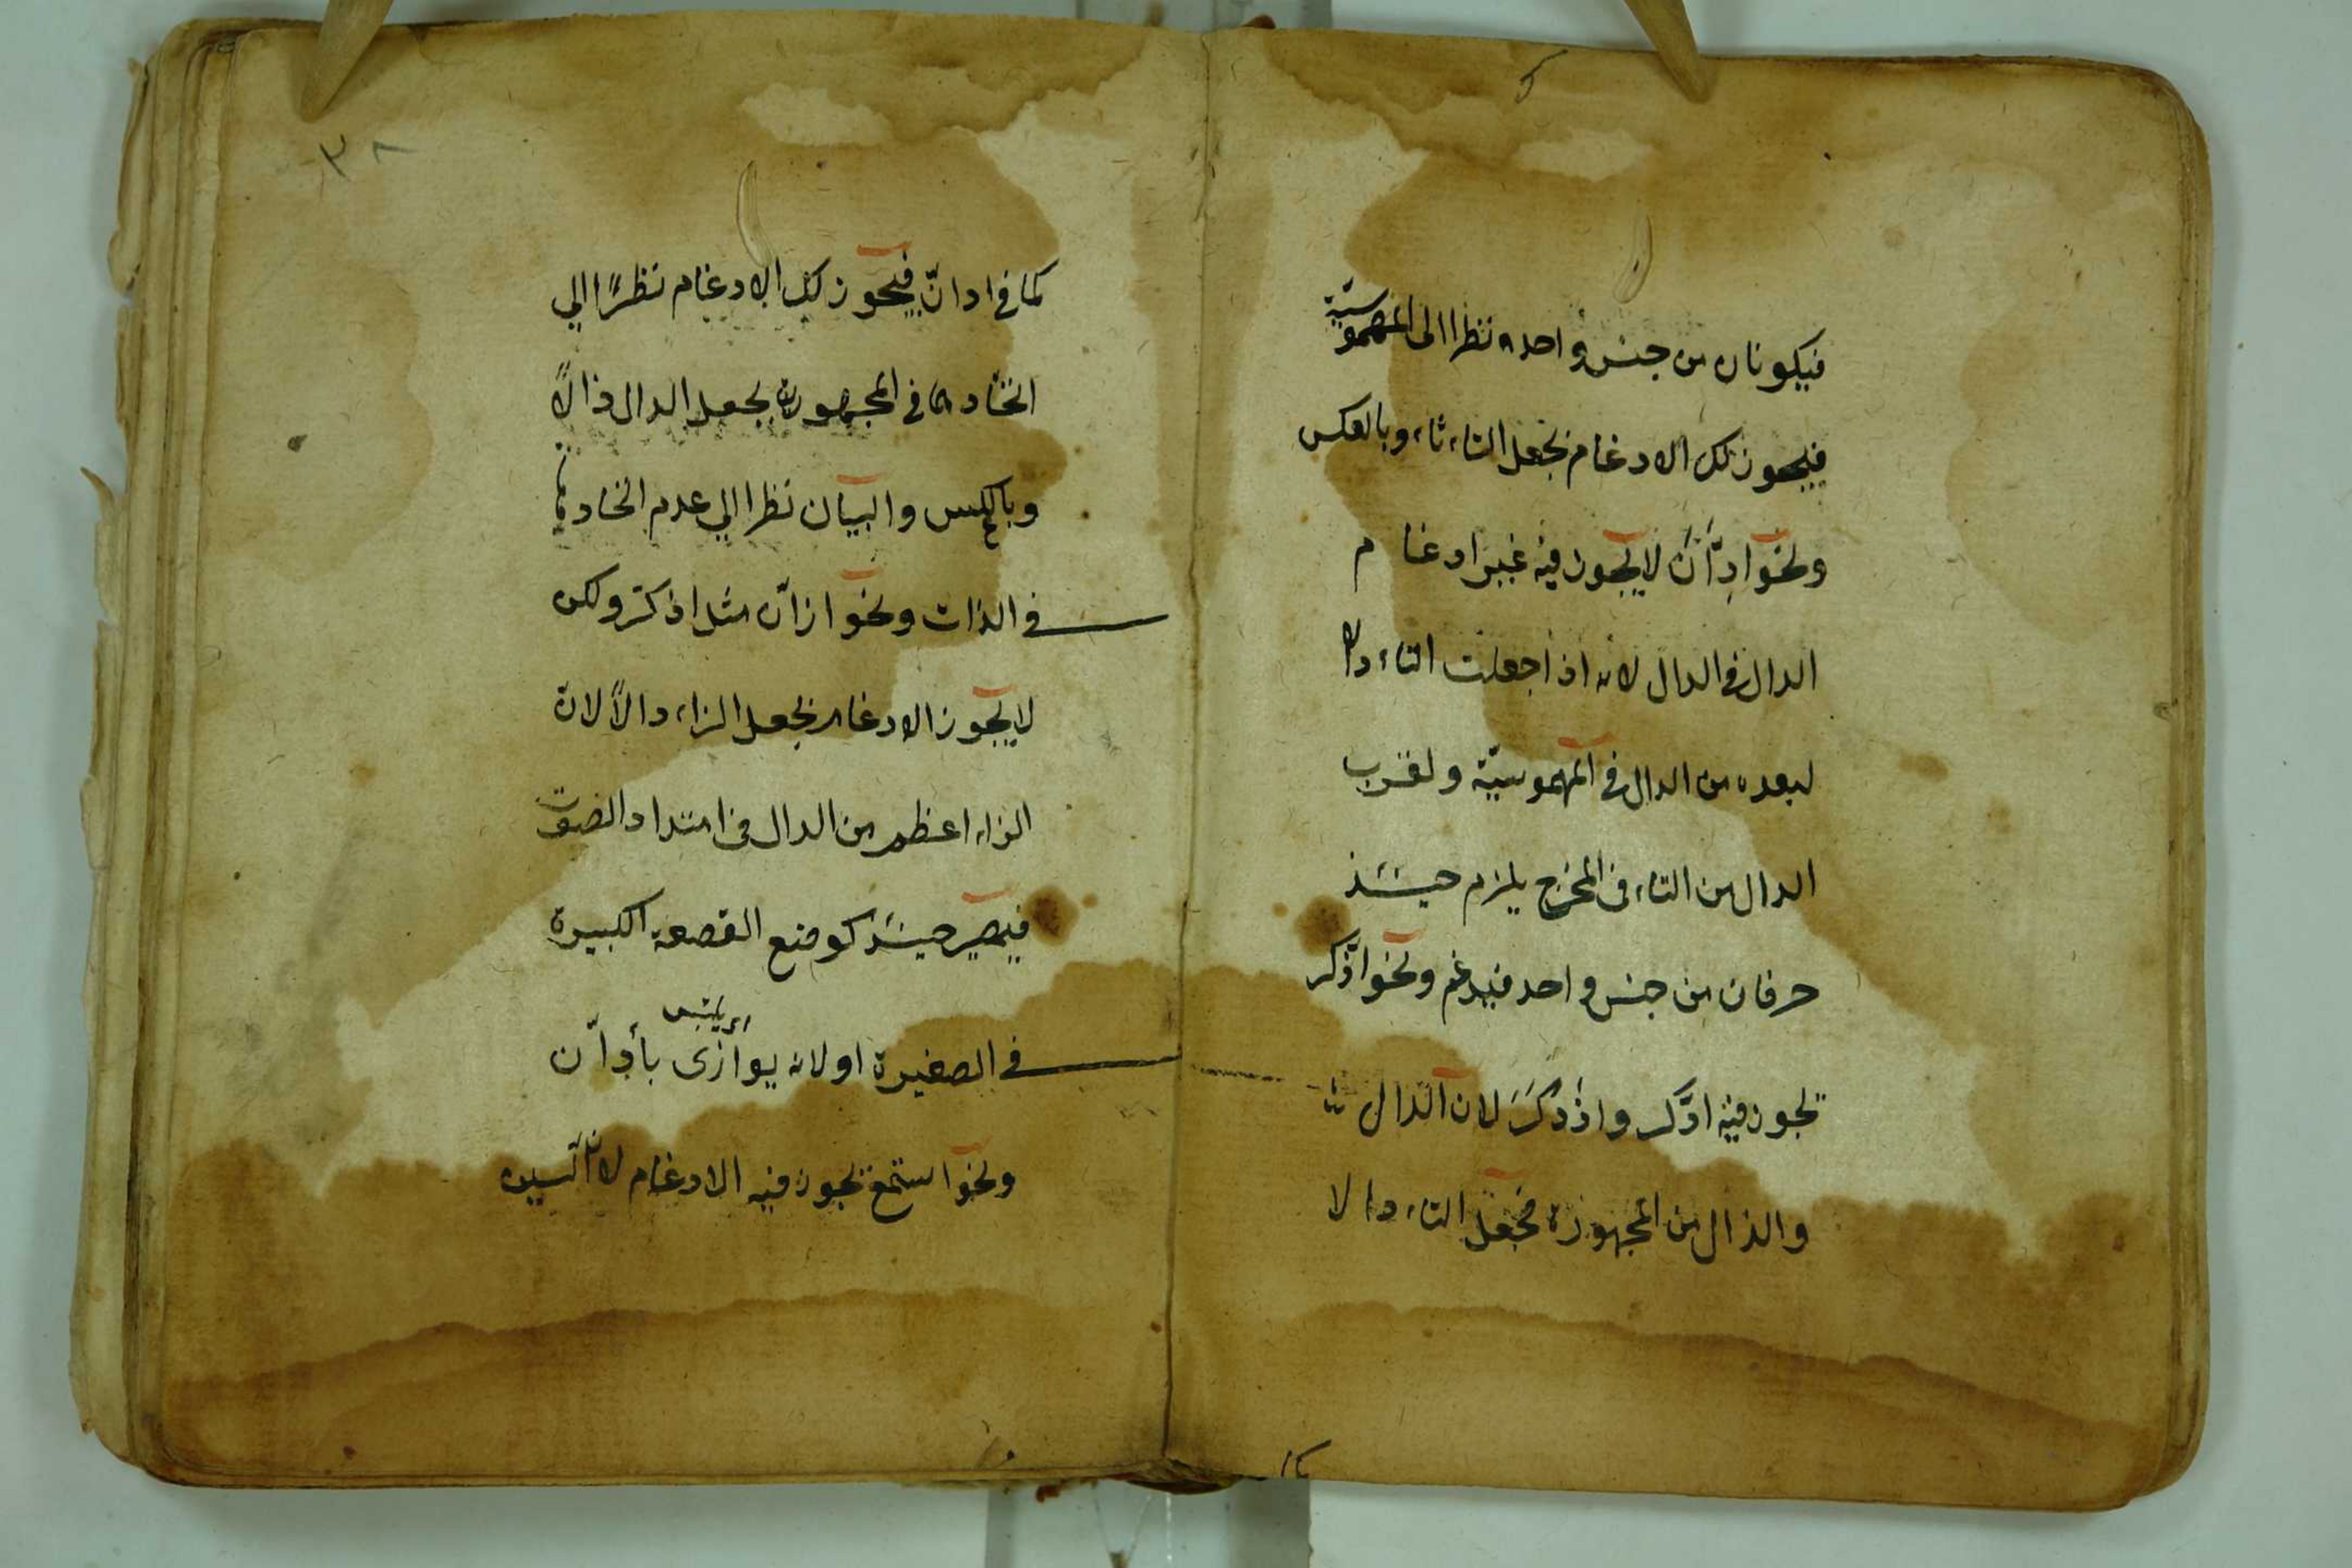 فيكونان من جنس واحد نظرا الى المهموسية
فيجوز لك الادغام بجعل التاء ثاء وبالعكس
ونحو ادّان لا يجوز فيه غير ادغام
الدال في الدال لانه اذا جعلت التاء دالا
لبعده من الدال في المهموسيّة ولقرب
الدال من التاء في المخرج يلزم حينئذ
حرفان من جنس واحد فيدغم ونحو اذّكر
تجوز فيه ادّكر واذدكر لان الدال
والذال من المجهورة فجعل التاء دالا
٣٨
كما في ادانّ فيجوز لك الادغام نظرًا الي
اتحادهما في المجهورية بجعل الدال ذالًا
وبالعكس والبيان نظرا الي عدم اتحادهما
في الذات ونحو ازانّ مثل اذكّر ولكن
لا يجوز الادغام بجعل الزاء دالًا لان
الزاء اعظم من الدال في امتداد الصوت
فيصير حينئذ كوضع القصعة الكبيرة
في الصغيرة او لانه يوازى بأدّان
اى يلتبس
ونحو استمع تجوز فيه الادغام لان السين